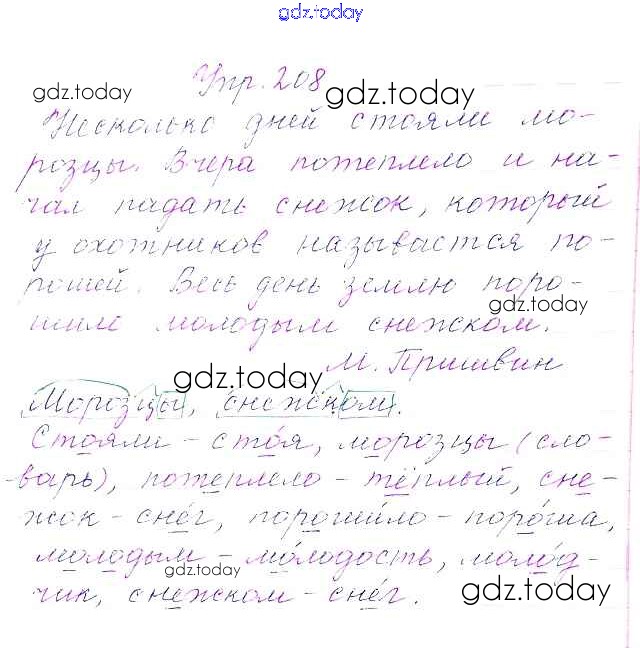 gdz.today
Упр. 208
gdz.today
gdz.today
Несколько дней стояли мо-
розцы. Вчера потеплело и на-
чал падать снежок, который
у охотников называется по-
рошей. Весь день землю поро-
gdz.today
шило молодым снежком.
М. Пришвин
gdz.today
Морозцы, снежком.
Стояли - стоя, морозцы (сло-
-варь), потеплело - тёплый, сне-
жок - снег, порошило - пороша,
молодым - молодость, молод-
gdz.today
чик, снежком - снег.
gdz.today